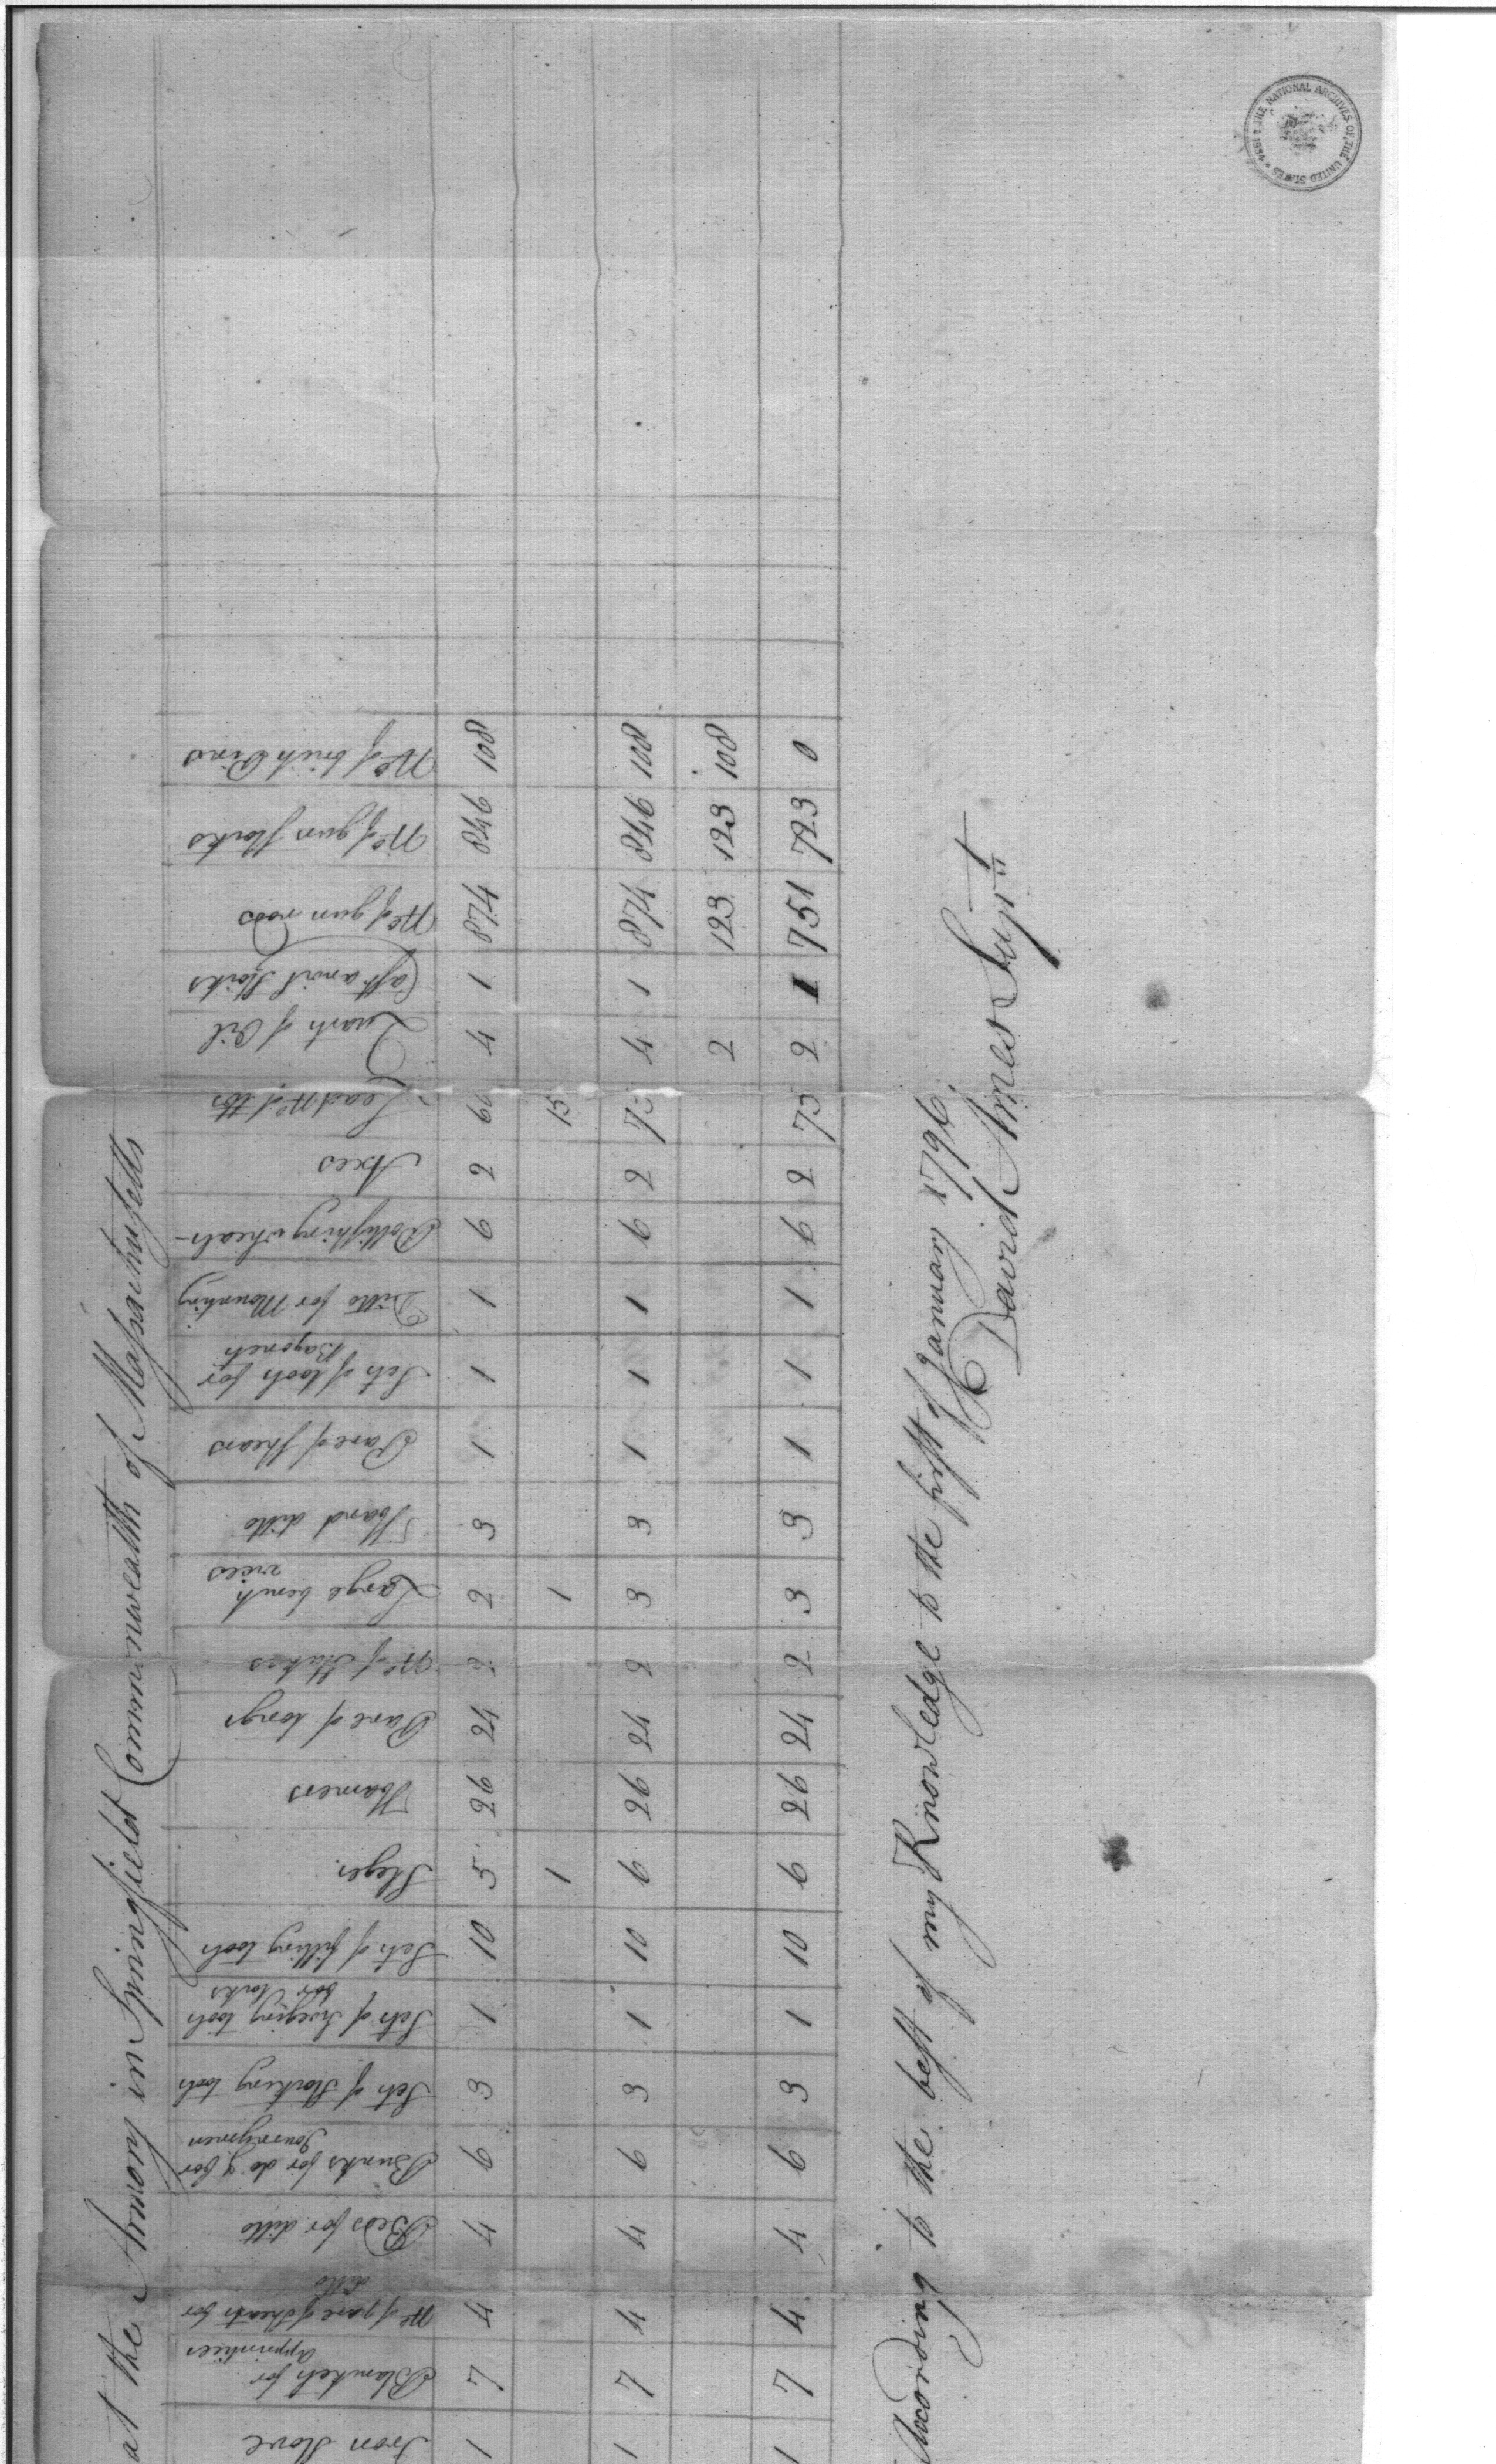 at the Armory in Springfield Commonwealth of Massachusetts
Iron Stove
Blankets for
Apprintices
No of pare of Sheats for
ditto
Beds for ditto
Bunks for do & for
Journeymen
Sets of Stocking tools
Sets of Sweging tools
for Locks
Sets of filling tools
Sleges
Hamers
Pare of tongs
No of Stakes
Large bench
vices
Hand ditto
Pare of Shears
Sets of tools for
Bayonets
Ditto for Mounting
Pollishing wheals
Axes
Lead No of lbs
Quarts of Oil
Cast anvil Stocks
No of gun rods
No of gun Stocks
No of brich Pins
1 7 4 4 6 3 1 10 5 26 24 2 2 3 1 1 1 6 2 60 4 1 874 846 108
1 1 15
1 7 4 4 6 3 1 10 6 26 24 2 3 3 1 1 1 6 2 75 4 1 874 846 108
2 123 123 108
1 7 4 4 6 3 1 10 6 26 24 2 3 3 1 1 1 6 2 75 2 1 751 723 0
According to the best of my Knowledge to the first of January 1796
David Ames Supt
THE NATIONAL ARCHIVES OF THE UNITED STATES * 1934 *